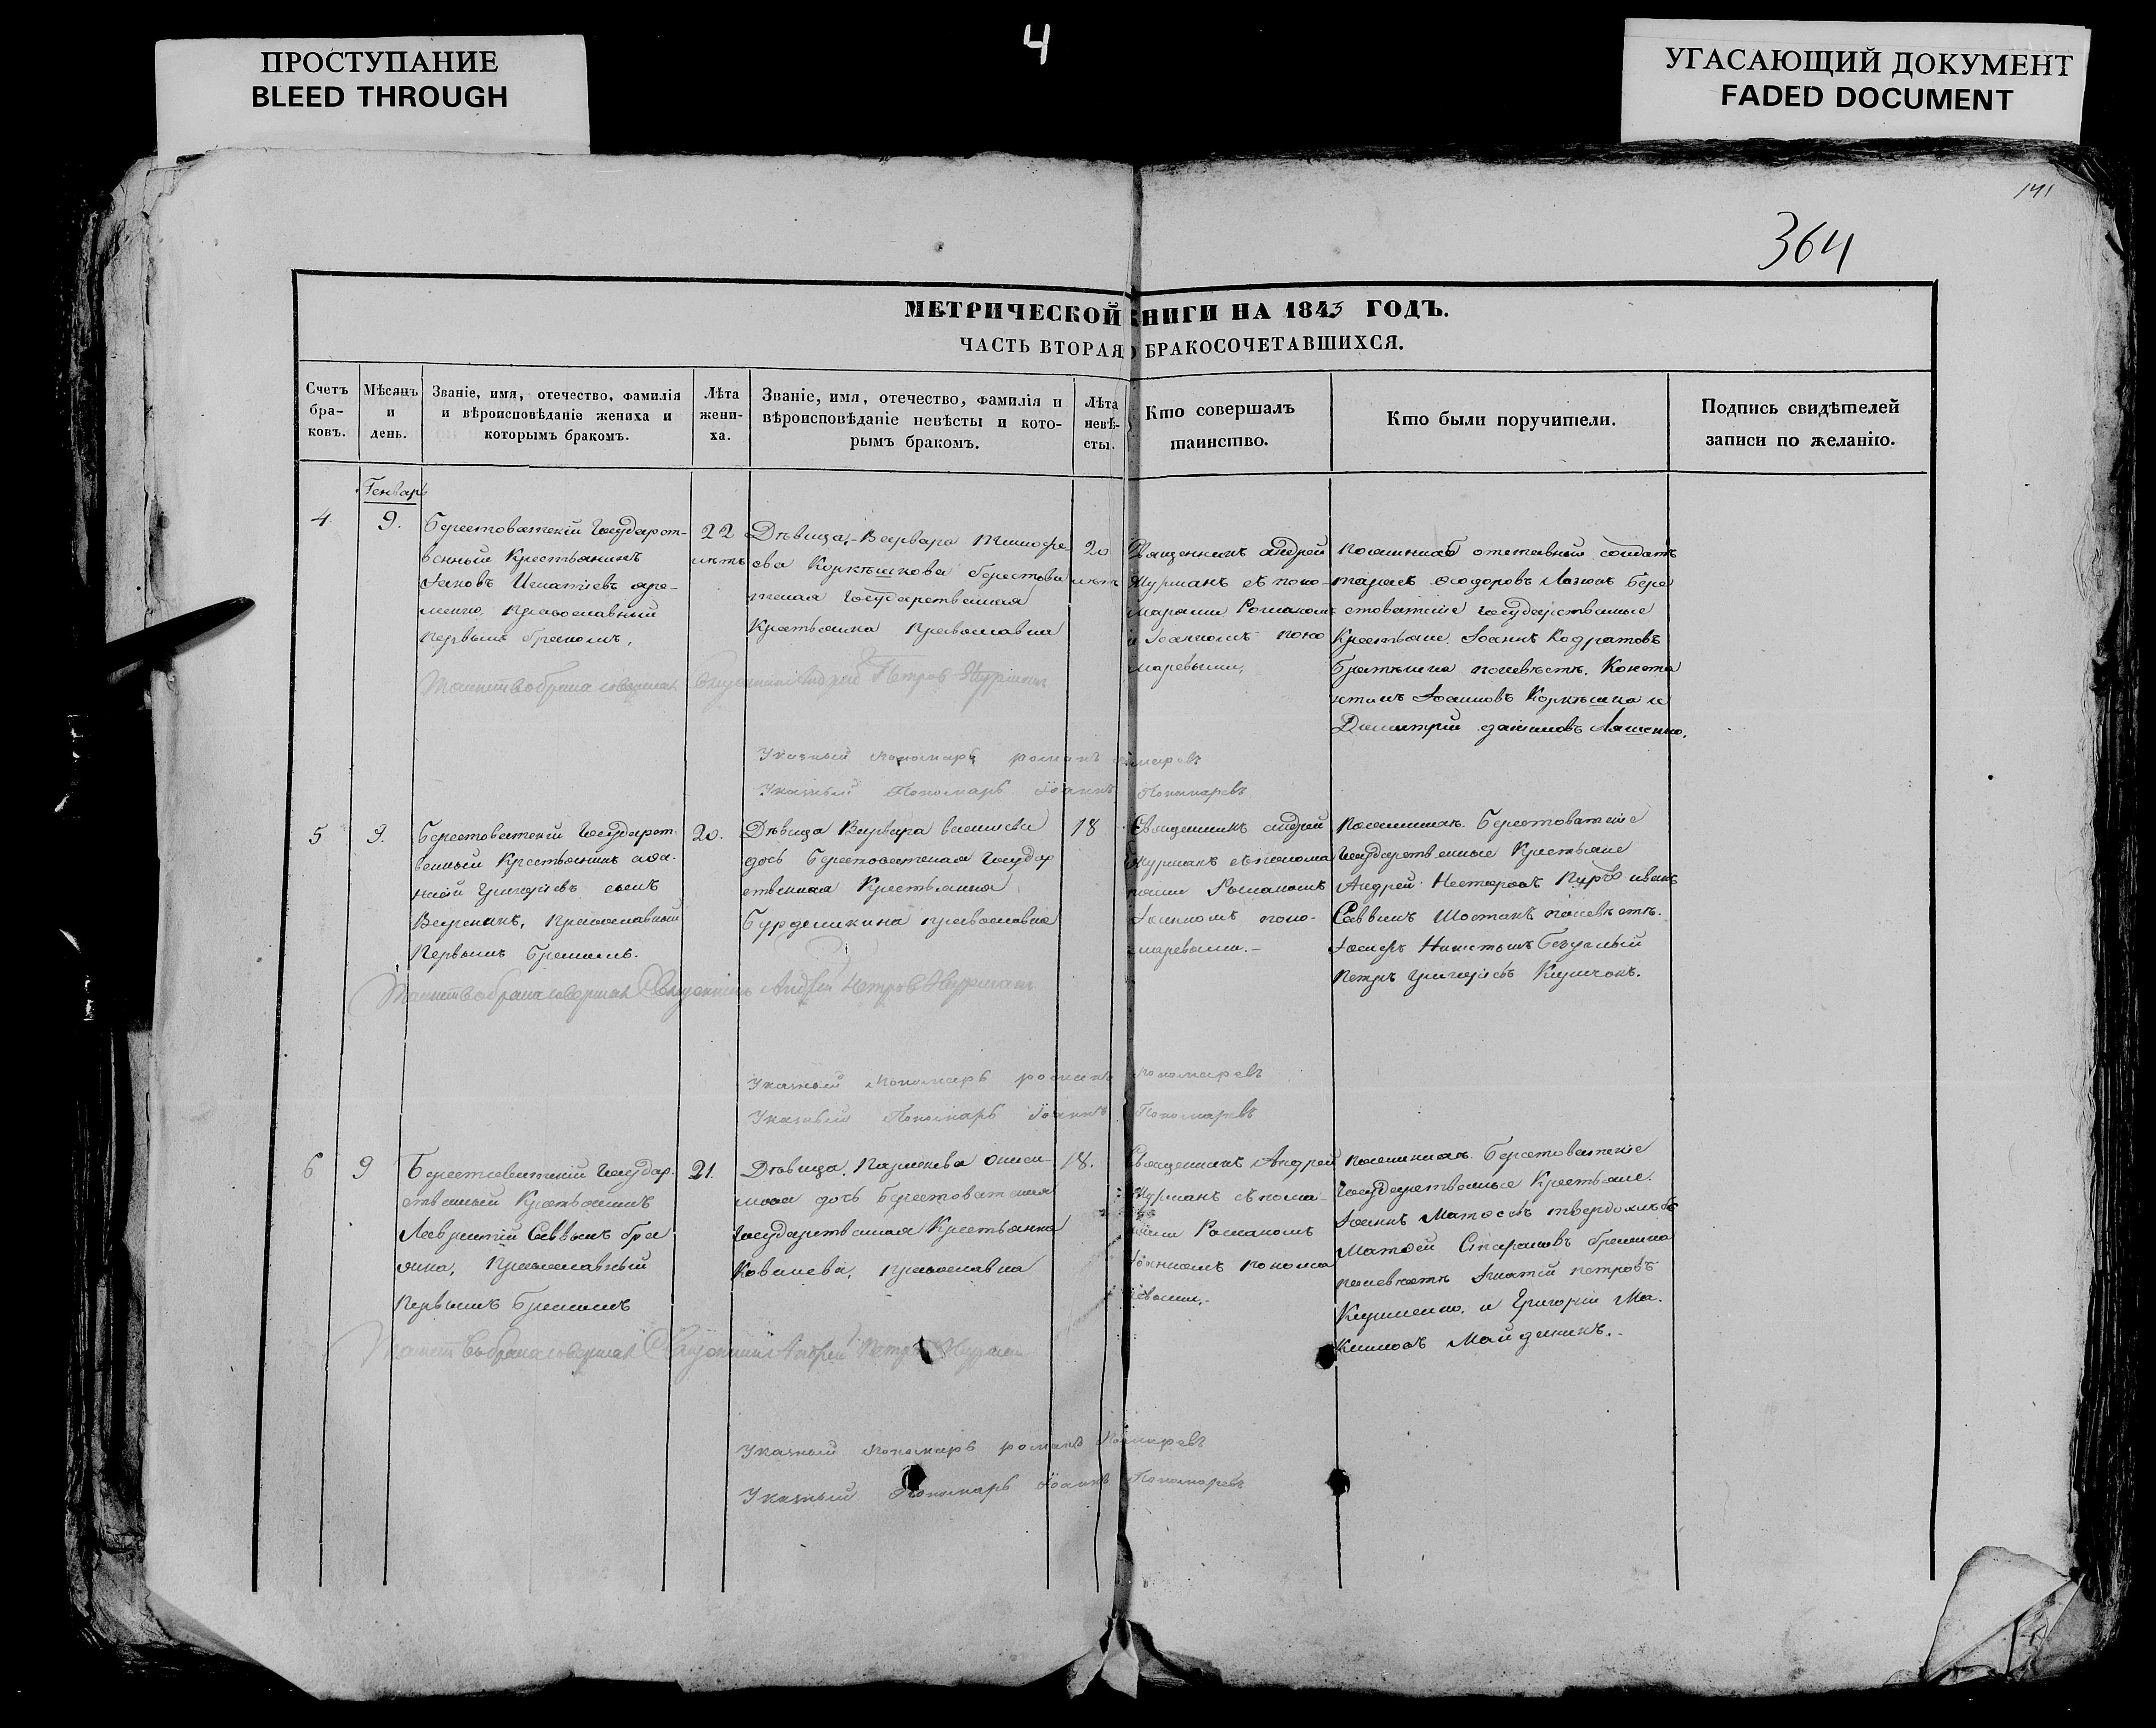 ПРОСТУПАНИЕ
BLEED THROUGH
4
УГАСАЮЩИЙ ДОКУМЕНТ
FADED DOCUMENT
141
364
МЕТРИЧЕСКОЙ КНИГИ НА 1843 ГОДЪ.
ЧАСТЬ ВТОРАЯ О БРАКОСОЧЕТАВШИХСЯ.
Счетъ
бра-
ковъ.
Мѣсяцъ
и
день.
Званіе, имя, отечество, фамилія
и вѣроисповѣданіе жениха и
которымъ бракомъ.
Лѣта
жени-
ха.
Званіе, имя, отечество, фамилія и
вѣроисповѣданіе невѣсты и кото-
рымъ бракомъ.
Лѣта
невѣ-
сты.
Кто совершалъ
таинство.
Кто были поручители.
Подпись свидѣтелей
записи по желанію.
Генварь
4
9.
Берестоватскій Государст-
венный Крестьянинъ
Іаковъ Игнатіевъ
православный
первымъ бракомъ,
22
лѣтъ
Дѣвица, Варвара Тимофе-
ева берестова
тская Государственная
Крестьянка Православна
20
лѣтъ
Священникъ андрей
Журманъ съ поно-
марями Романомъ
и Іоанномъ поно
маревыми,
отставный солдатъ
тарасъ Ѳеодоровъ Бере
стоватскіе Государственные
Крестьяне Іоаннъ Кодратовъ
поневѣстѣ. Конста
нтинъ Іоанновъ и
Димитрій Ляшенко,
Таинство брака совершалъ Священникъ Андрей Петровъ Журманъ
Указный Пономарь романъ Пономаревъ
Указный Пономарь Іоаннъ Пономаревъ
5
9.
Берестоватскій Государст
венный Крестьянинъ аѳа-
насій Григоріевъ сынъ
Православный
Первымъ Бракомъ.
20.
Дѣвица Варвара васильева
дочь Берестоватская Государ
ственная Крестьянка
православна
18
Священникъ андрей
Журманъ съ понома
рями Романомъ
Іоанномъ поно-
маревыми.-
Берестоватскіе
Государственные Крестьяне
Андрей иванъ
Саввинъ Шостакъ поневѣстѣ.
Іосифъ Никитинъ
Петръ Григоріевъ
Таинство брака совершалъ Священникъ Андрей Петровъ Журманъ
Указный Пономарь романъ Пономаревъ
Указный Пономарь Іоаннъ Пономаревъ
6
9
Берестоватскій Государ
ственный Крестьянинъ
Лаврентій Саввинъ
Православный
Первымъ Бракомъ
21.
Дѣвица Параскева Ониси-
мова дочь Берестоватская
Государственная Крестьянка
Ковалева, православна
18.
Священникъ Андрей
Журманъ съ понома-
рями Романомъ
Іоанномъ понома
ревыми,-
Берестоватскіе
Государственные Крестьяне.
Іоаннъ Матѳеевъ твердохлѣбъ
Матѳей
поневѣстѣ Игнатій петровъ
и Григорій Ма-
ксимовъ Майданикъ.-
Таинство брака совершалъ Священникъ Андрей Петровъ Журманъ
Указный Пономарь романъ Пономаревъ
Указный Пономарь Іоаннъ Пономаревъ